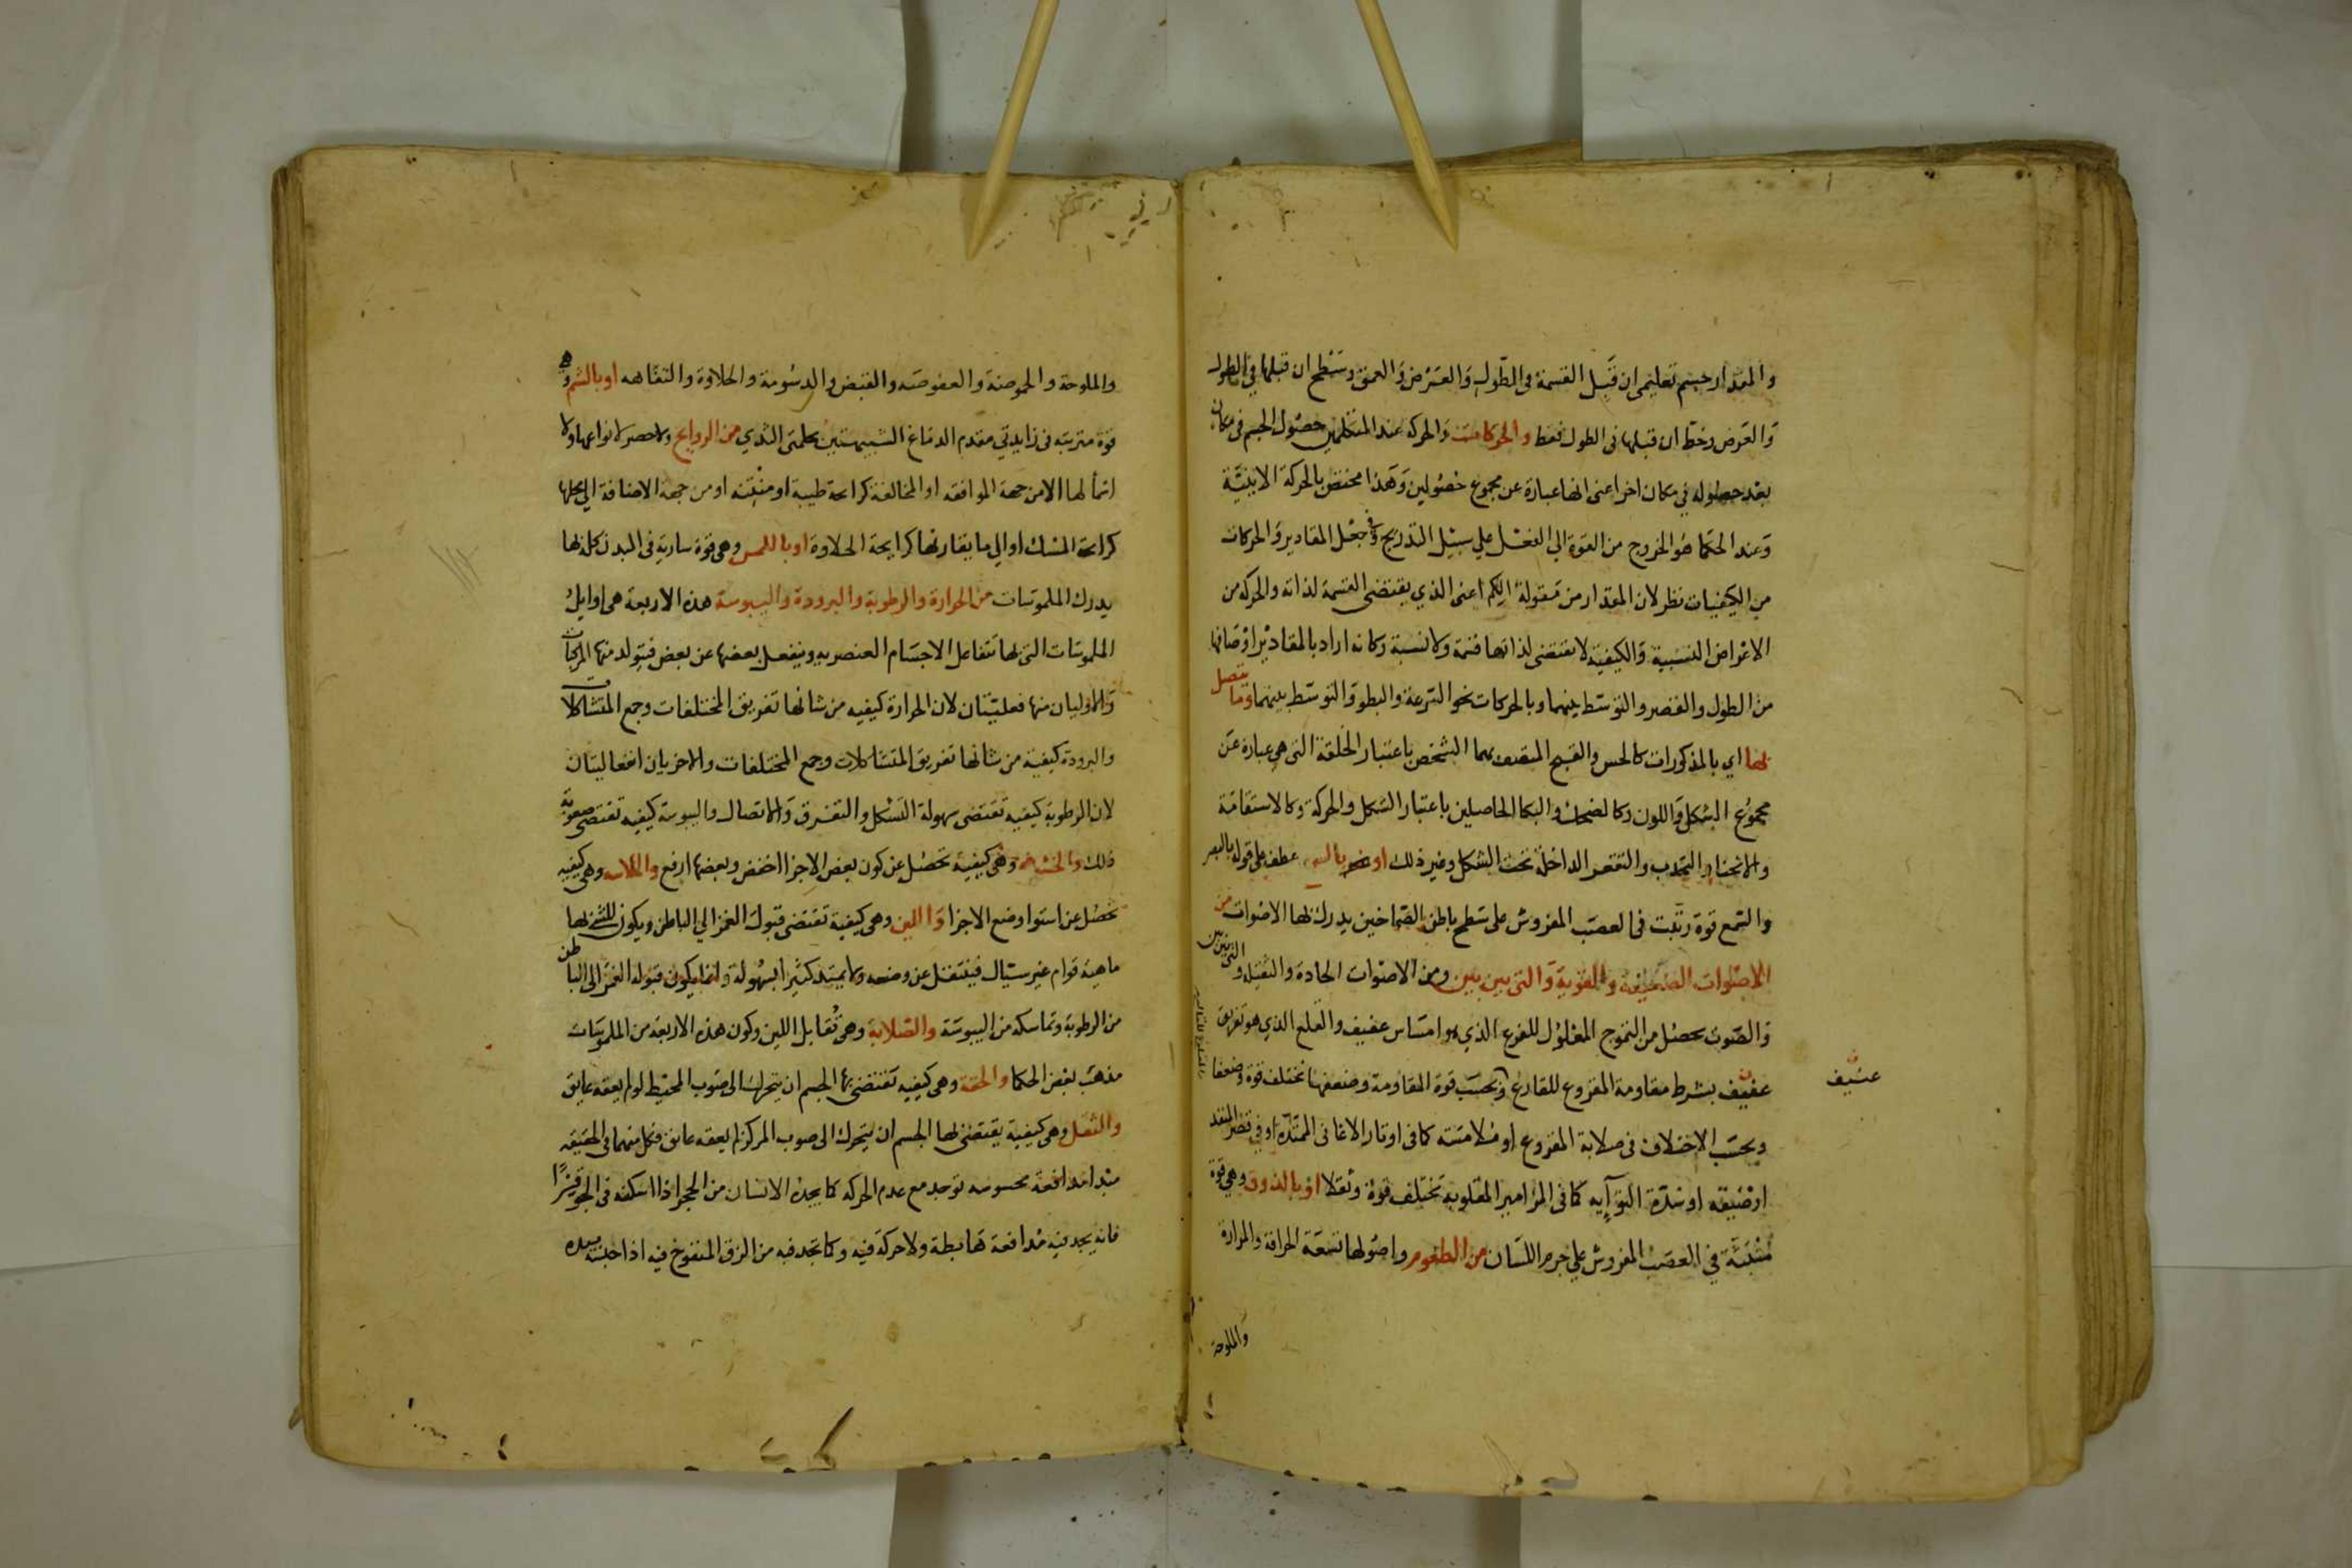 والمقدار جسم تعليمي ان قبل القسمة في الطول والعرض والعمق وسطح ان قبلها في الطول
والعرض وخط ان قبلها في الطول فقط والحركات والحركة عند المتكلمين حصول الجسم في مكان
بعد حصوله في مكان اخر اعني انها عبارة عن مجموع حصولين وهذا مختص بالحركة الاينية
وعند الحكما هو الخروج من القوة الي الفعل علي سبيل التدريج وفي جعل المقادير والحركات
من الكيفيات نظر لان المقدار من مقولة الكم اعني الذي يقتضي القسمة لذاته والحركة من
الاعراض النسبية والكيفية لا تقتضي لذاتها قسمة ولا نسبة وكانه اراد بالمقادير اوصافها
من الطول والقصر والتوسط بينهما وبالحركات نحو السرعة والبطو والتوسط بينهما وما يتصل
بها اي بالمذكورات كالحسن والقبح المتصف بهما الشخص باعتبار الخلقة التي هي عبارة عن
مجموع الشكل واللون وكالضحك والبكا الحاصلين باعتبار الشكل والحركة وكالاستقامة
والانحنا والتحدب والتقعر الداخلة تحت الشكل وغير ذلك او بالسمع عطف علي قوله بالبصر
والسمع قوة رتبت في العصب المفروش علي سطح باطن الصماخين يدرك بها الاصوات من
الاصوات الضعيفة والقوية والتي بين بين ومن الاصوات الحادة والثقيلة والتي بين بين
والصوت يحصل من التموج المعلول للقرع الذي هو امساس عنيف والقلع الذي هو تفريق
عنيف بشرط مقاومة المقروع للقارع وبحسب قوة المقاومة وضعفها تختلف قوة وضعفا
وبحسب الاختلاف في صلابة المقروع او ملاسته كما في اوتار الاغاني الممتدة او في قصر المنفذ
او ضيقه او شدة التوآيه كما في المزامير الملتوية تختلف قوة وثقلا او بالذوق وهي قوة
منبثة في العصب المفروش علي جرم اللسان من الطعوم واصولها تسعة الحرافة والمرارة
والملوحة
والملوحة والحموضة والعفوصه والقبض والدسومة والحلاوة والتفاهه او بالشم وهي
قوة مترتبة في زايدتي مقدم الدماغ الشبيهتين بحلمتي الثدي من الروايح ولا حصر لانواعها ولا
اسما لها الا من جهة الموافقه او المخالفة كرايحة طيبة او منتنة او من جهة الاضافة الي محلها
كرايحة المسك او الي ما يقارنها كرايحة الحلاوة او باللمس وهي قوة سارية في البدن كله بها
يدرك الملموسات من الحرارة والرطوبة والبرودة واليبوسة هذه الاربعة هي اوايل
الملموسات التي بها تتفاعل الاجسام العنصرية وينفعل بعضها عن بعض فيتولد منها المركبات
والاوليان منها فعليتان لان الحرارة كيفيه من شانها تفريق المختلفات وجمع المتشاكلات
والبرودة كيفية من شانها تفريق المتشاكلات وجمع المختلفات والاخريان انفعاليتان
لان الرطوبة كيفيه تقتضي سهولة التشكل والتفرق والاتصال واليبوسة كيفيه تقتضي صعوبة
ذلك والخشونة وهي كيفية تحصل عن كون بعض الاجزا اخفض وبعضها ارفع والملاسه وهي كيفيه
تحصل عن استوا وضع الاجزا واللين وهي كيفية تقتضي قبول الغمز الي الباطن ويكون للشي بها
ماهية قوام غير سيال فينتقل عن وضعه ولا يمتد كثيرا بسهولة وانما يكون قبوله الغمز الي الباطن
من الرطوبة وتماسكه من اليبوسة والصلابة وهي تقابل اللين وكون هذه الاربعة من الملموسات
مذهب بعض الحكما والخفة وهي كيفيه تقتضي بها الجسم ان يتحرك الي صوب المحيط لو لم يعقه عايق
والثقل وهي كيفية يقتضي بها الجسم ان يتحرك الي صوب المركز لو لم يعقه عايق فكل منهما في الحقيقه
مبدا مدافعة محسوسه توجد مع عدم الحركه كما يجده الانسان من الحجر اذا اسكنه في الجو قسرا
فانه يجد فيه مدافعة هابطة ولا حركة فيه وكما تجد فيه من الزق المنفوخ فيه اذا حبسته بيده